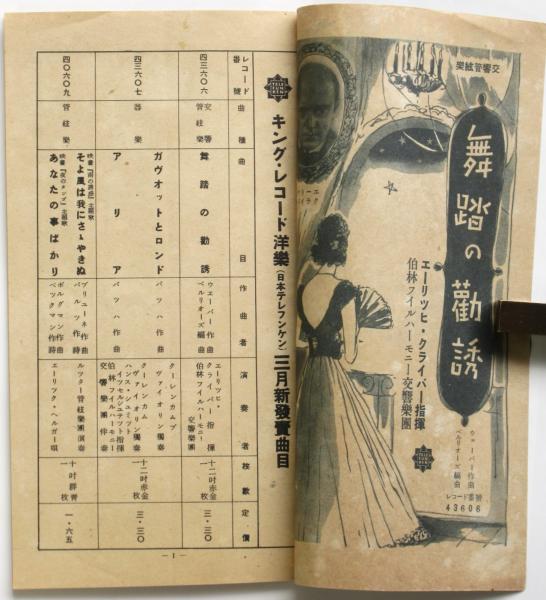 交響管絃樂
舞踏の勸誘
エーリッヒ・クライバー指揮
伯林フイルハーモニー交響樂團
ウェーバー作曲
ベルリオーズ編曲
レコード番號
43606
キング・レコード洋樂(日本テレフンケン)三月新發賣曲目
レコード番號
曲種
曲目
作曲者
演奏者
枚數
定價
四三六〇六
交響管絃樂
舞踏の勸誘
ウエーバー作曲
ベルリオーズ編曲
エーリッヒ・クライバー指揮
伯林フイルハーモニー交響樂團
十二吋赤金一枚
三・三〇
四三六〇七
器樂
ガヴオットとロンド
アリア
バッハ作曲
バッハ作曲
クーレンカムプ
ヴァイオリン獨奏
クーレンカムプ
ヴァイオリン獨奏
ハンス・シュミット
イツセルシュテツト指揮
伯林フイルハーモニー
交響樂團伴奏
十二吋赤金一枚
三・三〇
四〇六〇九
管絃樂
そよ風は我にさゝやきぬ
映畫
主題歌
あなたの事ばかり
映畫
主題歌
ブリューネ作曲
バルツ作詩
ボルグマン作曲
ベックマン作詩
ルツター管絃樂團演奏
エーリツク・ヘルガー唄
十吋群青一枚
一・六五
—1—